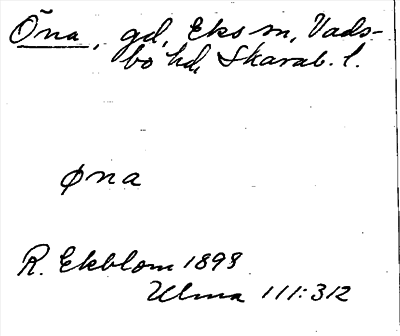 Öna, gd, Eks sn, Vads-
bo hd, Skarab. l.
øna
R. Ekblom 1898
Ulma 111:312